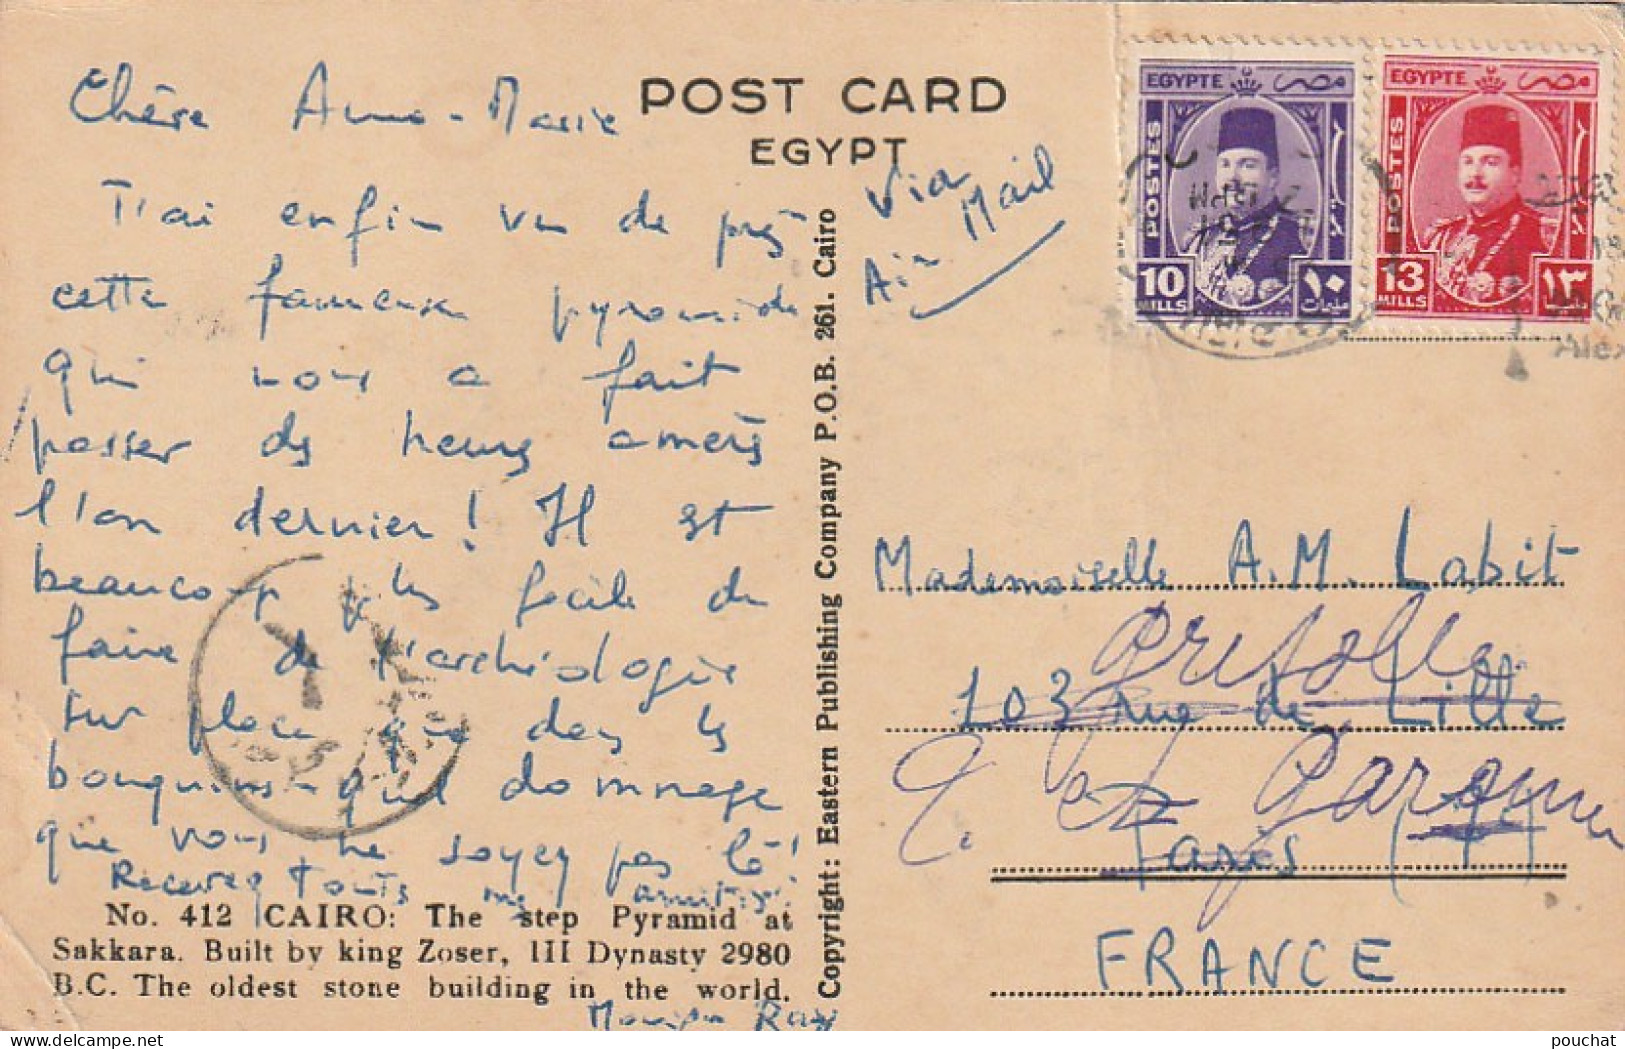 POST CARD
EGYPT
Via
Air Mail
Chère Anne-Marie
J'ai enfin vu de près
cette fameuse pyramide
qui nous a fait
passer des heures amères
l'an dernier! Il est
beaucoup plus facile de
faire de l'archéologie
sur place que dans les
bouquins - quel dommage
que vous ne soyez pas là!
Recevez toutes mes amitiés.
Monique
No. 412 CAIRO: The step Pyramid at
Sakkara. Built by king Zoser, III Dynasty 2980
B.C. The oldest stone building in the world.
Copyright: Eastern Publishing Company P.O.B. 261. Cairo
EGYPTE مصر
POSTES
10 MILLS ١٠ مليمات
EGYPTE مصر
POSTES
13 MILLS ١٣
Alex
Mademoiselle A.M. Labit
103 rue de Lille
Paris (7)
FRANCE
pouchat